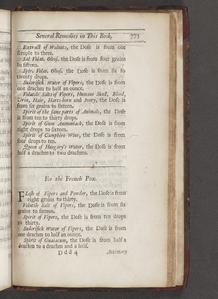 Several Remedies in This Book, 775
Extract of Walnuts, the Dose is from one
scruple to three.
Sal Volat. Oleos. the Dose is from four grains
to sixteen.
Spir. Volat. Oleos. the Dose is from six to
twenty drops.
Sudorifick Water of Vipers, the Dose is from
one drachm to half an ounce.
Volatile Salts of Vipers, Humane Skull, Blood,
Urin, Hair, Harts-horn and Ivory, the Dose is
from six grains to sixteen.
Spirit of the same parts of Animals, the Dose
is from ten to thirty drops.
Spirit of Gum Ammoniack, the Dose is from
eight drops to sixteen.
Spirit of Camphire Wine, the Dose is from
four drops to ten.
Queen of Hungary's Water, the Dose is from
half a drachm to two drachms.
For the French Pox.
Flesh of Vipers and Powder, the Dose is from
eight grains to thirty.
Volatile Salt of Vipers, the Dose is from six
grains to sixteen.
Spirit of Vipers, the Dose is from ten drops
to thirty.
Sudorifick Water of Vipers, the Dose is from
one drachm to half an ounce.
Spirit of Guaiacum, the Dose is from half a
drachm to a drachm and a half.
Ddd 4